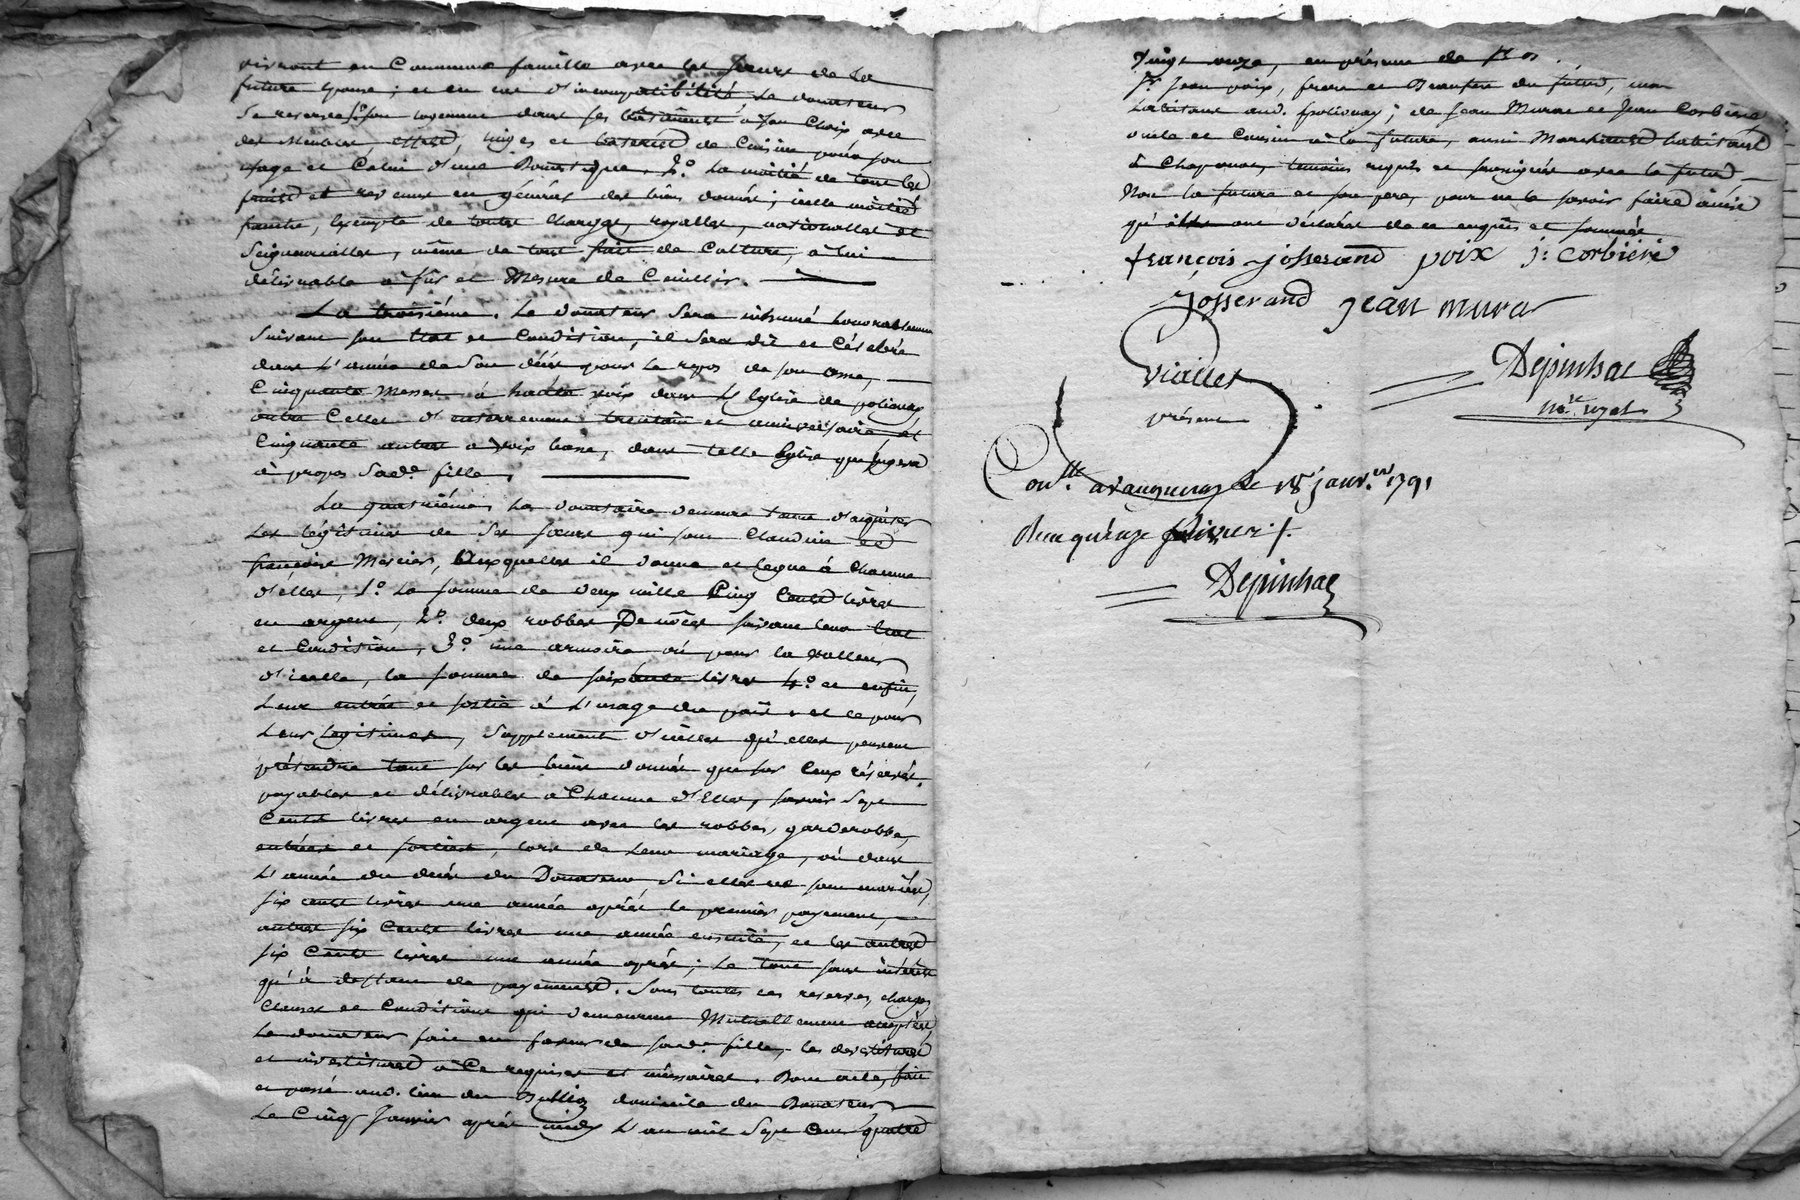 vivront en Commune famille avec les soeurs de La
future Epouse; et en cas d'incompatibilité Le donateur
Se reserve 1º. son logement dans ses batiments à son Choix, avec
des Meubles, effets, linges et baterie de Cuisine pour son
usage et Celui d'une Domestique. 2º. La moitié de tous les
fruits et revenus en général des biens donnés; icelle moitié
franche, Exempte de toutes charges, royalles, nationalles et
Seigneurialles, même de tout frait de Culture, à lui
délivrable à fur et Mesure de Ceuillir.
La troisiéme, Le donateur Sera inhumé honorablement
Suivant son Etat et Condition, il Sera dit et Célébré
dans L'année de Son décés pour Le repos de son ame,
Cinquante Messes à haute voix dans L'Eglise de polignay
outre Celles d'enterrement trentain et anniversaire et
Cinquante autres à voix basse, dans telle Eglise que jugera
à propos Sad.e fille.
La quatriéme, La donataire demeure tenue d'aquiter
Les légitimes de Ses soeurs qui sont Claudine et
françoise Mercier, auxquelles il donne et legue à chacune
d'elles, 1º. La somme de deux mille Cinq Cents livres
en argent, 2º. deux robbes De nôces suivant leur Etat
et Condition, 3º. une armoire ou pour la valleur
d'icelle, la somme de soixante livres 4º. et enfin,
Leur entrée et sortie à L'usage du païs, et ce pour
Leurs legitimes, Supplement d'icelles qu'elles peuvent
prétendre tant sur les biens donnés que sur Ceux réservés,
payables et délivrables à Chacune d'Elles, savoir Sept
Cents livres en argent avec les robbes, garderobbe,
entrées et sorties, lors de Leur mariage, ou dans
L'année du décés du Donateur, Si elles se sont mariées,
six cents livres une année aprés le premier payement,
autres six Cents livres une année ensuite, et les autres
six Cents livres une année aprés; Le tout sans intérêts
qu'à deffaut de payements. Sous toutes ces reserves, charges
Clauses et Conditions qui demeurent Mutuellement acceptées,
Le donateur fait en faveur de sad.e fille, les devestitures
et investitures à Ce requises et nécessaires. Dont acte, fait
et passé aud. lieu du domicile du Donateur
Le Cinq Janvier aprés midy L'an mil Sept Cent quatre
vingt onze, en présence de
S.r Jean poix, frere et Beaufrere du futur,
habitant aud. ; de Jean Murat et Jean Corbière
oncle et Cousin à la future, aussi Marchands habitants
à Chaponas, temoins requis et soussignés avec le futur,
Non la future et son pere, pour ne le savoir faire ainsi
qu'ils ont déclaré de ce enquis et sommés
françois josserand poix j: corbière
josserand jean mura
viallet
présent
Depinhac
no.re royal
Con.lle a vauxneray le 18 janv.er 1791
Reçu quinze livres
Depinhac